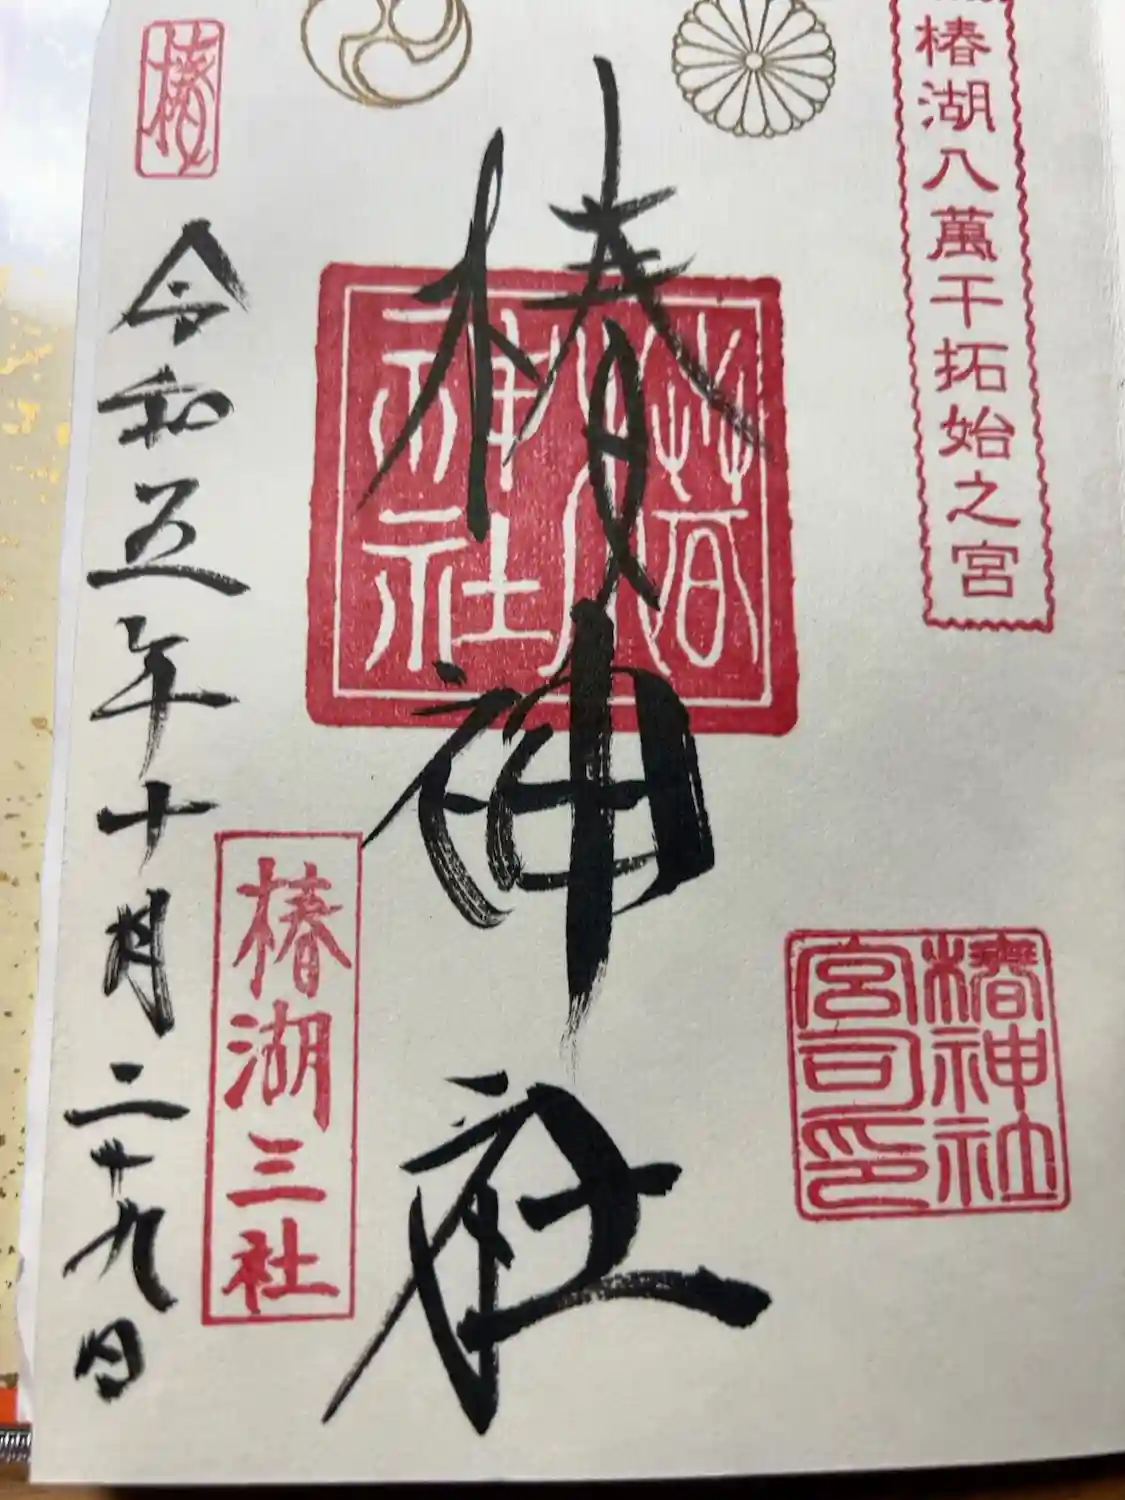 椿湖八萬干拓始之宮
椿神社
椿神社
椿神社
宮司印
椿湖三社
椿
令和五年十月二十九日